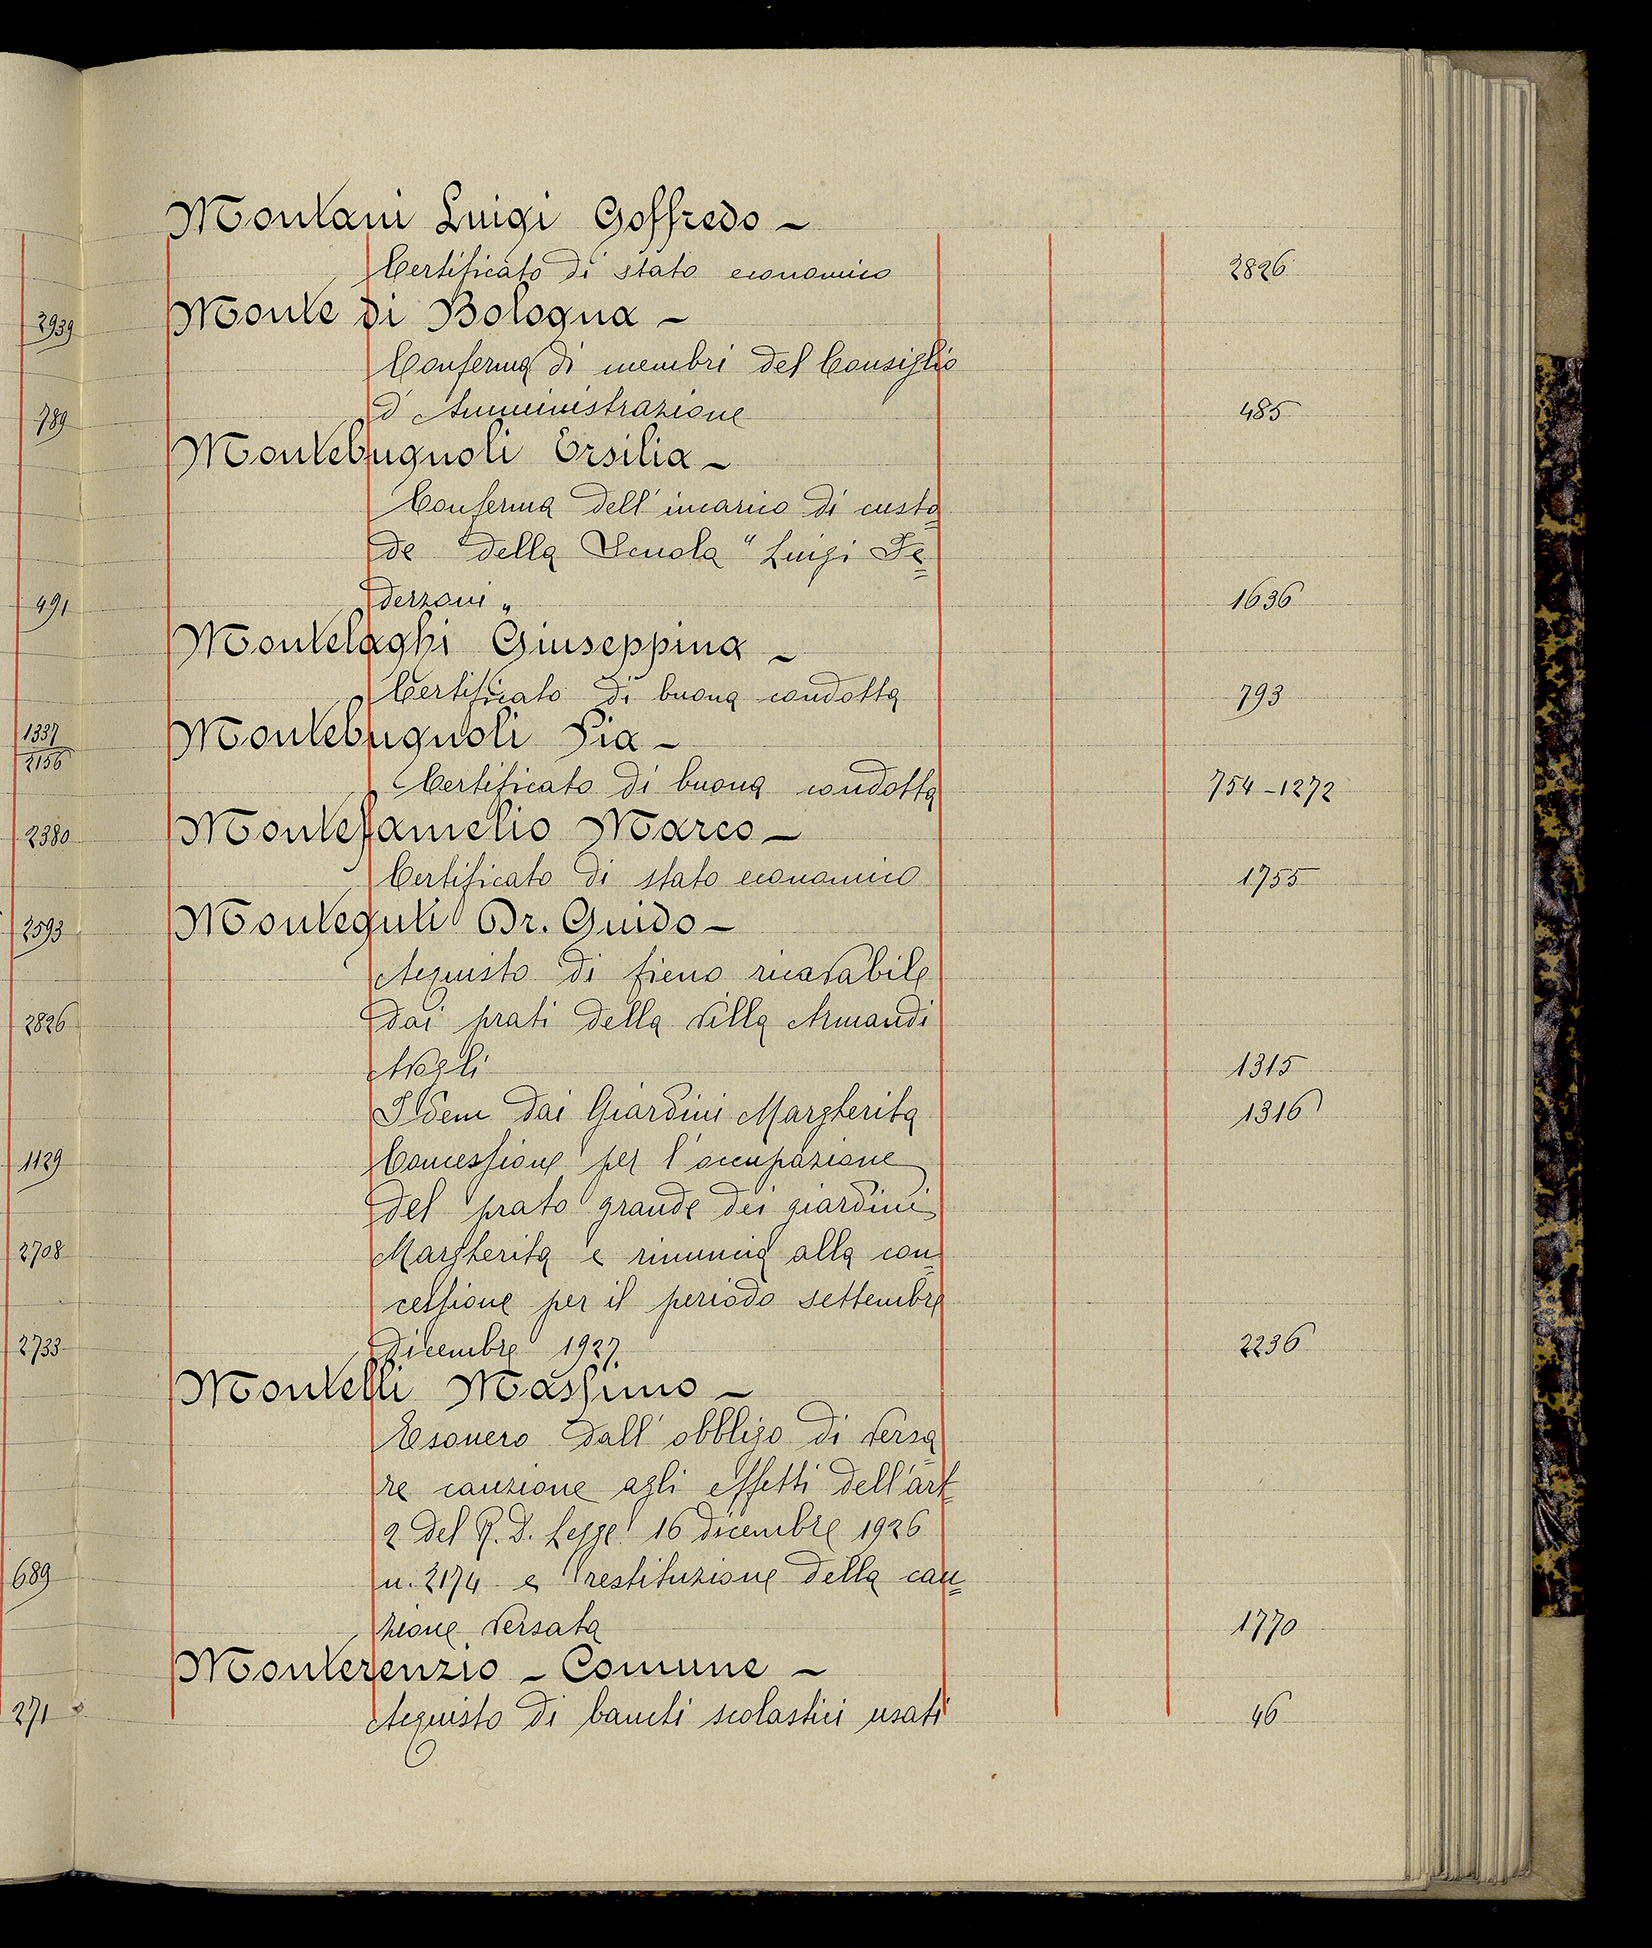 Montani Luigi Goffredo -
Certificato di stato economico 2826
Monte di Bologna -
Conferma di membri del Consiglio
d'Amministrazione 485
Montebugnoli Ersilia -
Conferma dell'incarico di custo=
de della Scuola "Luigi Fe=
derzoni" 1636
Montelaghi Giuseppina -
Certificato di buona condotta 793
Montebugnoli Pia -
Certificato di buona condotta 754-1272
Montefamelio Marco -
Certificato di stato economico 1755
Monteguti Dr. Guido -
Acquisto di fieno ricavabile
dai prati della villa Armandi
Nogli 1315
Idem dai Giardini Margherita 1316
Concessione per l'occupazione
del prato grande dei giardini
Margherita e rinuncia alla con=
cessione per il periodo settembre
dicembre 1927. 2236
Montelli Massimo -
Esonero dall'obbligo di versa=
re cauzione agli effetti dell'art.
2 del R. D. Legge 16 dicembre 1926
n. 2174 e restituzione della cau=
zione versata 1770
Monterenzio - Comune -
Acquisto di banchi scolastici usati 46
2939
789
491
1337
2156
2380
2593
2826
1129
2708
2733
689
271